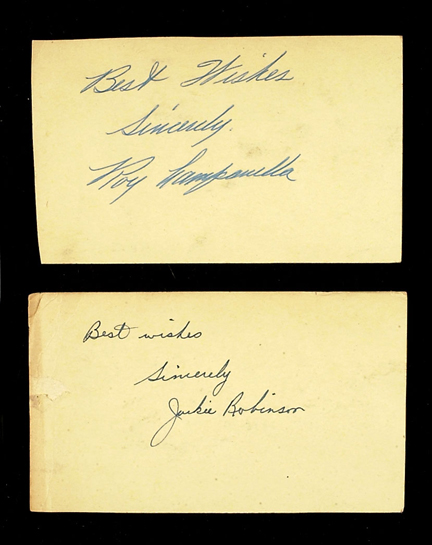 Best Wishes
Sincerely.
Roy Campanella
Best wishes
Sincerely
Jackie Robinson